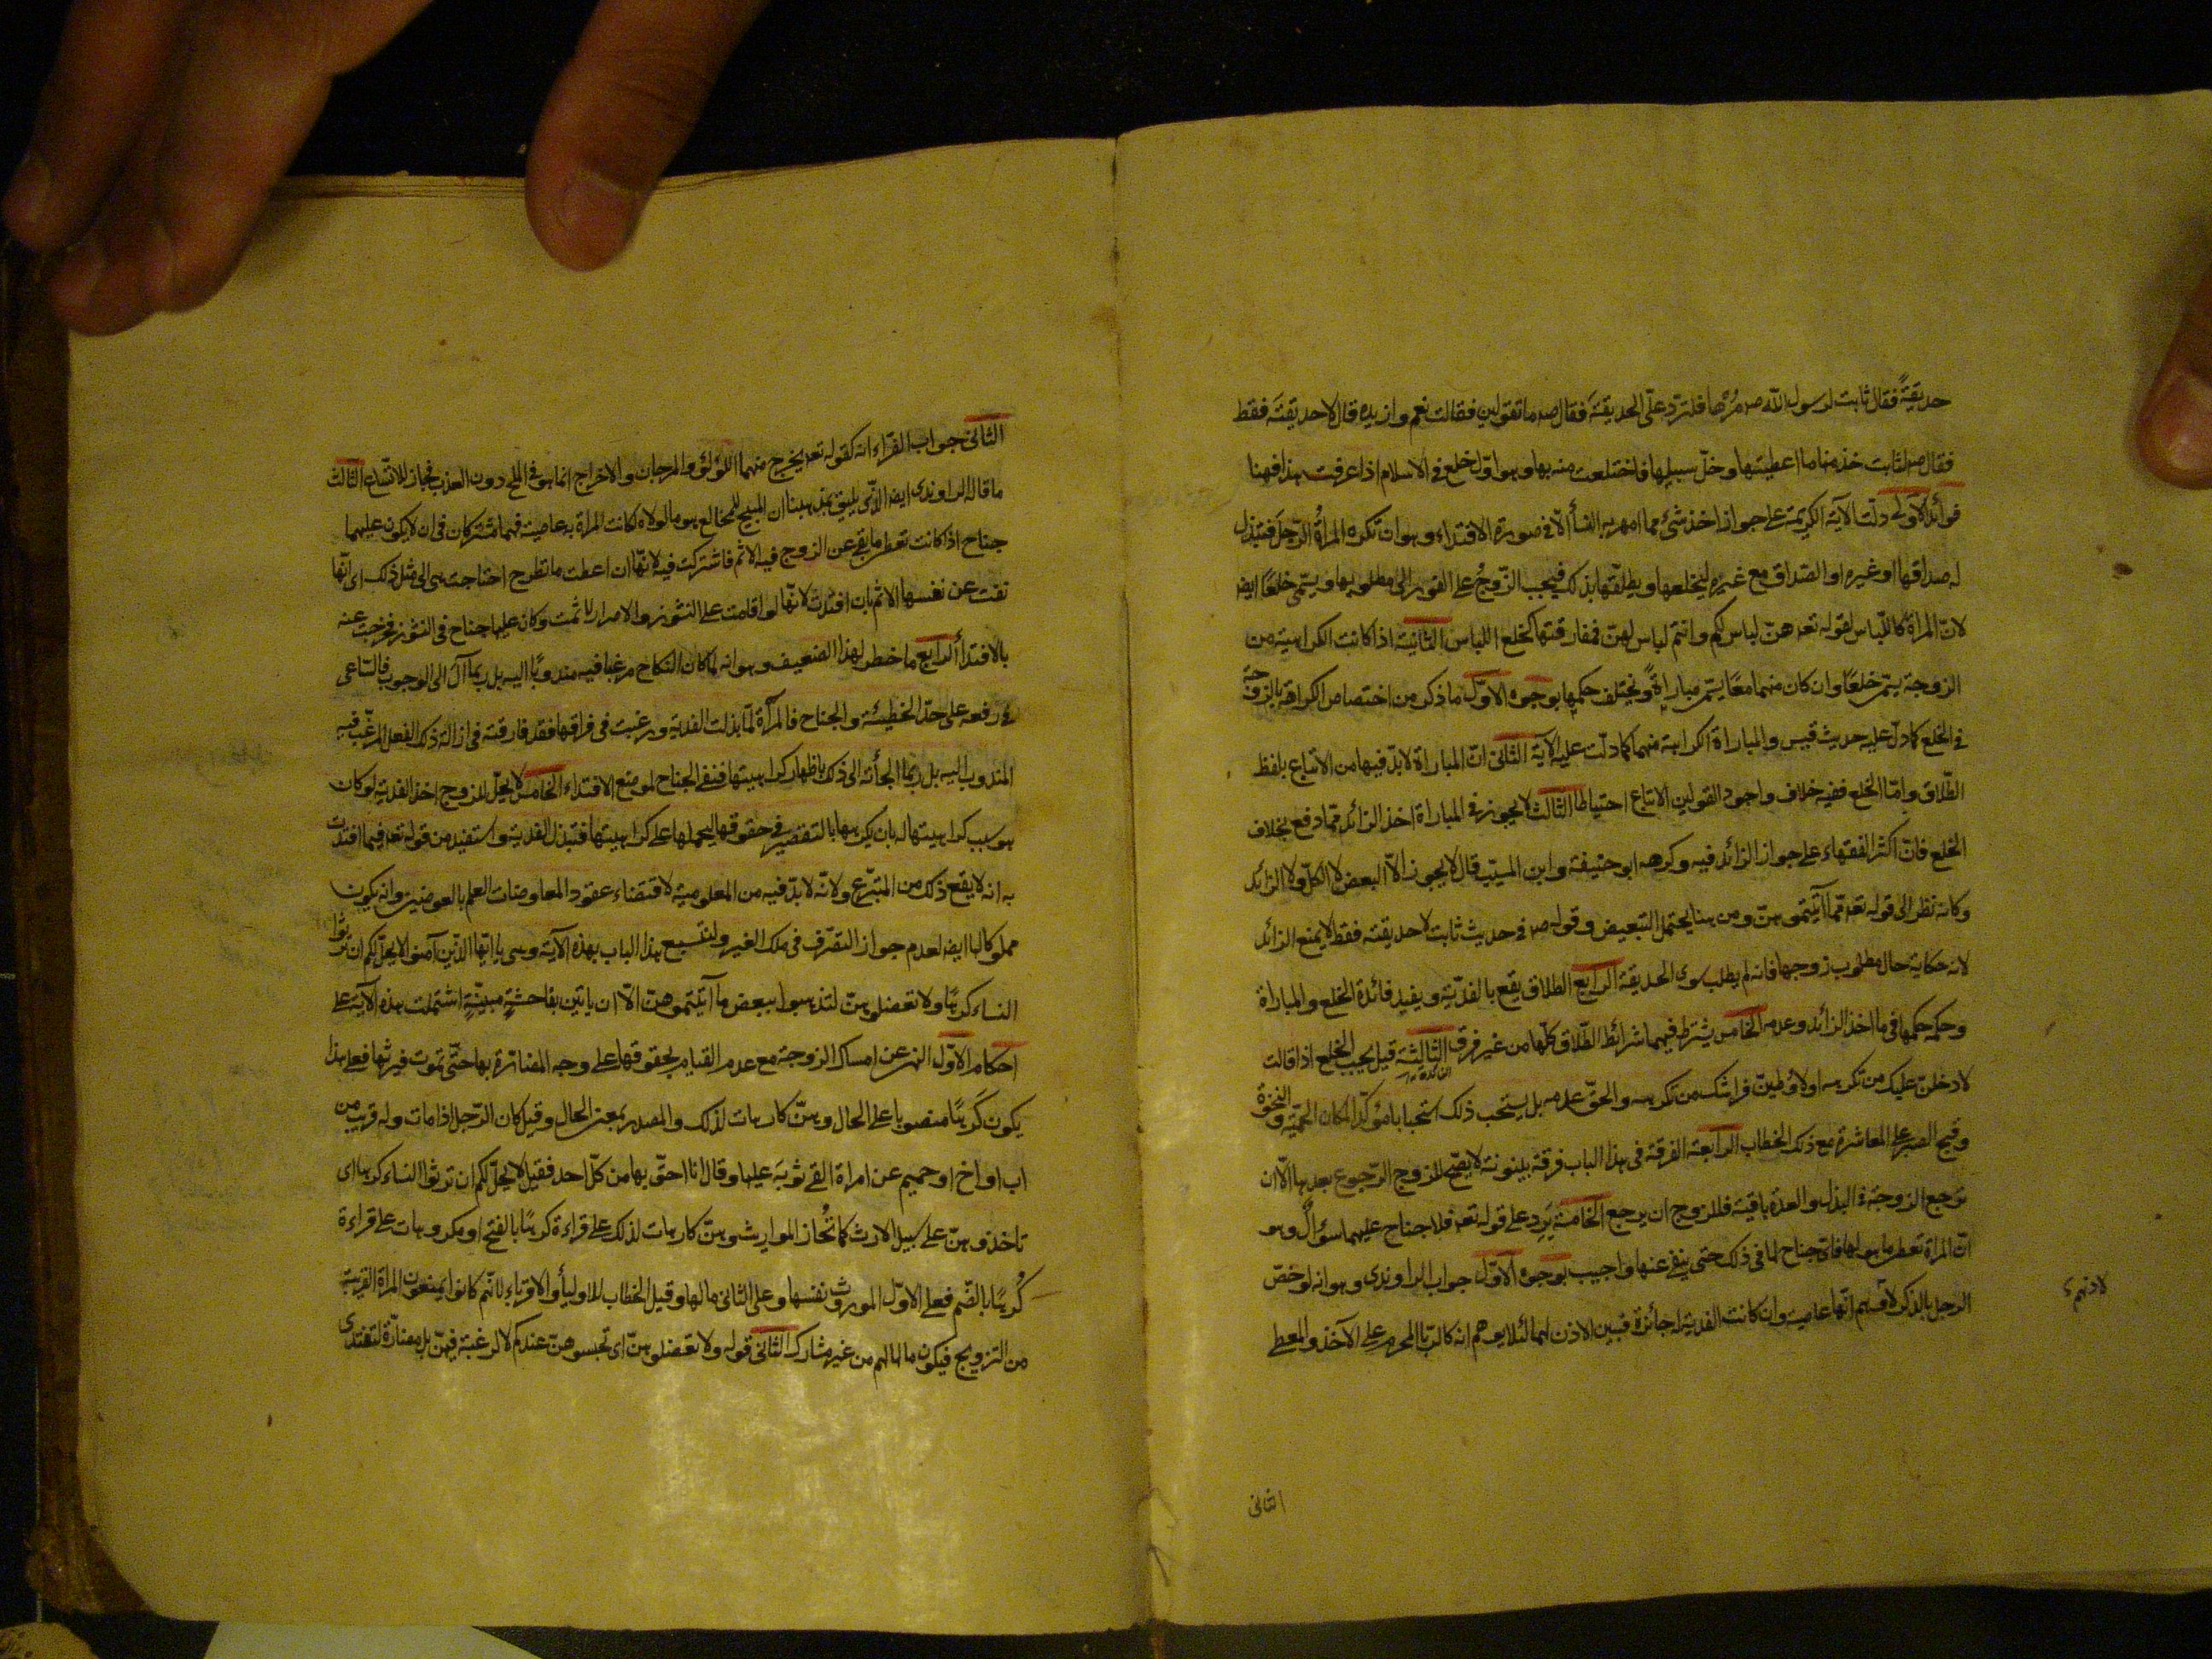 حديقةً فقال ثابت لرسول الله صم مُرْها فلتردّ علىّ الحديقةَ فقال صم ما تقولين فقالت نعم وازيده قال لا حديقتَه فقط
فقال صم لثابت خذ منها ما اعطيتها وخلّ سبيلها فاختلعت منه بها وهو اوّل خلع فى الاسلام اذا عرفت هذا فهنا
فوائد الاولى دلّت الآية الكريمة على جواز اخذ شئ مما امهر به النسأ الّا فى صورة الافتداء وهو ان تكره المرأةُ الرّجلَ فتبذل
له صداقها او غيره او الصّداق مع غيره ليخلعها ويطلّقها بذلك فيجيب الزّوجُ على الفور الى مطلوبها ويسمّى خلعًا ايضا
لانّ المرأة كاللّباس لقوله تعه هنّ لباس لكم وانتم لباس لهنّ فمفارقتها كخلع اللباس الثّانية اذا كانت الكراهية من
الزوجة يسمّى خلعًا وان كان منهما معًا يسمّى مباراةً ويختلف حكمها بوجوه الاوّل ما ذكر من اختصاص الكراهة بالزوجة
فى الخلع كما دلّ عليه حديث قيس والمباراة الكراهية منهما كما دلّت عليه الآية الثّانى انّ المباراة لا بدّ فيها من الاتباع بلفظ
الطّلاق وامّا الخلع ففيه خلاف واجود القولين الاتباع احتياطا الثالث لا يجوز فى المباراة اخذ الزائد ممّا دفع بخلاف
الخلع فانّ اكثر الفقهاء على جواز الزائد فيه وكرهه ابو حنيفة وابن المسيّب قال لا يجوز الّا البعض لا الكلّ ولا الزائد
وكانه نظر الى قوله تعه ممّا آتيتموهنّ ومن هنا يحتمل التبعيض وقوله صم فى حديث ثابت لا حديقته فقط لا يمنع الزائد
لانه حكاية حال مطلوب زوجها فانه لم يطلب سوى الحديقة الرابع الطلاق يقع بالفدية ويفيد فائدة الخلع والمباراة
وحكمه حكمها فى ما اخذ الزائد وعدمه الخامس يشترط فيهما شرائط الطّلاق كلّها من غير فرق الثالثة قيل يجب الخلع اذا قالت
لادخلنّ عليك من تكرهه او لاوطينّ فراشك من تكرهه والحقّ عدمه بل يستحب ذلك استحبابا مؤكّدا لمكان الحميّة والنخوة
وقبح الصبر على المعاشرة مع ذلك الخطاب الرابعة الفرقة فى هذا الباب فرقة بينونة لا يصّح للزوج الرّجوع بعدها الّا ان
ترجع الزوجة فى البذل والعدة باقية فللزوج ان يرجع الخامسة يَرِد على قوله تعه فلا جناح عليهما سؤالٌ وهو
انّ المرأة تعطى ما هو لها فاىّ جناح لها فى ذلك حتى ينفى عنها واجيب بوجوه الاوّل جواب الراوندى وهو انه لو خصّ
الرجل بالذكر لاوهم انّها عاصية وان كانت الفدية له جائزة فبين الاذن لهما لئلا يوهم انه كالرّبا المحرم على الآخذ والمعطى
الثانى
الثانى جواب الفرّاء انه كقوله تعه يخرج منهما اللؤلؤ والمرجان والاخراج انما هو فى الملح دون العذب فجاز للاتّساع الثالث
ما قاله الراوندى ايضا الذى يليق بمذهبنا ان المبيح للمخالع هو ما لولاه لكانت المرأة به عاصية فهما مشتركان فى ان لا يكون عليهما
جناح اذا كانت تعطى ما نفى عن الزوج فيه الاثم فاشتركت فيه لانّها ان اعطت ما تطرح احتاجت هى الى مثل ذلك اى انّها
نفت عن نفسها الاثم بان افتدت لانّها لو اقامت على النشوز والاصرار لاثمت وكان عليها جناح فى النشوز فخرجت عنه
بالافتدأ الرابع ما خطر لهذا الضعيف وهو انه لما كان النكاح مرغبا فيه مندوبًا اليه بل ربما آل الى الوجوب فالسّاعى
فى رفعه على حدّ الخطيئة والجناح فالمرأة لمّا بذلت الفدية ورغبت فى فراقها فقد فارقته فى ازالة ذلك الفعل المرغّب فيه
المندوب اليه بل ربّما الجأته الى ذلك باظهار كراهيتها فنفى الجناح لموضع الافتداء الخامس لا يحلّ للزوج اخذ الفدية لو كان
هو سبب كراهيتها له بان يكرهها بالتقصير فى حقوقها ليحملها على كراهيتها فتبذل الفدية واستفيد من قوله تعه فيما افتدت
به انه لا يقع ذلك من المتبرّع ولانّه لا بدّ فيه من المعلومية لاقتضاء عقود المعاوضات العلم بالعوضين وانه يكون
مملوكا لها ايضا لعدم جواز التصرّف فى ملك الغير ولنتبع هذا الباب بهذه الآية وهى يا ايّها الذين آمنوا لا يحلّ لكم ان ترثوا
النساء كرهًا ولا تعضلوهنّ لتذهبوا ببعض ما آتيتموهنّ الّا ان ياتين بفاحشةٍ مبيّنةٍ اشتملت هذه الآية على
احكام الاوّل النهى عن امساك الزوجة مع عدم القيام بحقوقها على وجه المضارّة بها حتّى تموت فيرثها فعلى هذا
يكون كَرهًا منصوبا على الحال وهنّ كارهات لذلك والمصدر بمعنى الحال وقيل كان الرّجل اذا مات وله قريب من
اب او اخ او حميم عن امرأة القى ثوبَه عليها وقال انا احقّ بها من كلّ احد فقيل لا يحلّ لكم ان ترثوا النساء كرها اى
تاخذوهنّ على سبيل الارث كما تُحاز المواريث وهنّ كارهات لذلك على قراءة كرهًا بالفتح او مكروهات على قراءة
كُرهًا بالضّم فعلى الاوّل الموروث نفسها وعلى الثانى مالها وقيل الخطاب للاوليأ والاقرباء لانّهم كانوا يمنعون المرأة القريبة
من التزويج فيكون مالها لهم من غير مشارك الثّانى قوله ولا تعضلوهنّ اى تحبسوهنّ عندكم لا لرغبة فيهنّ بل مضارّة لتفتدى